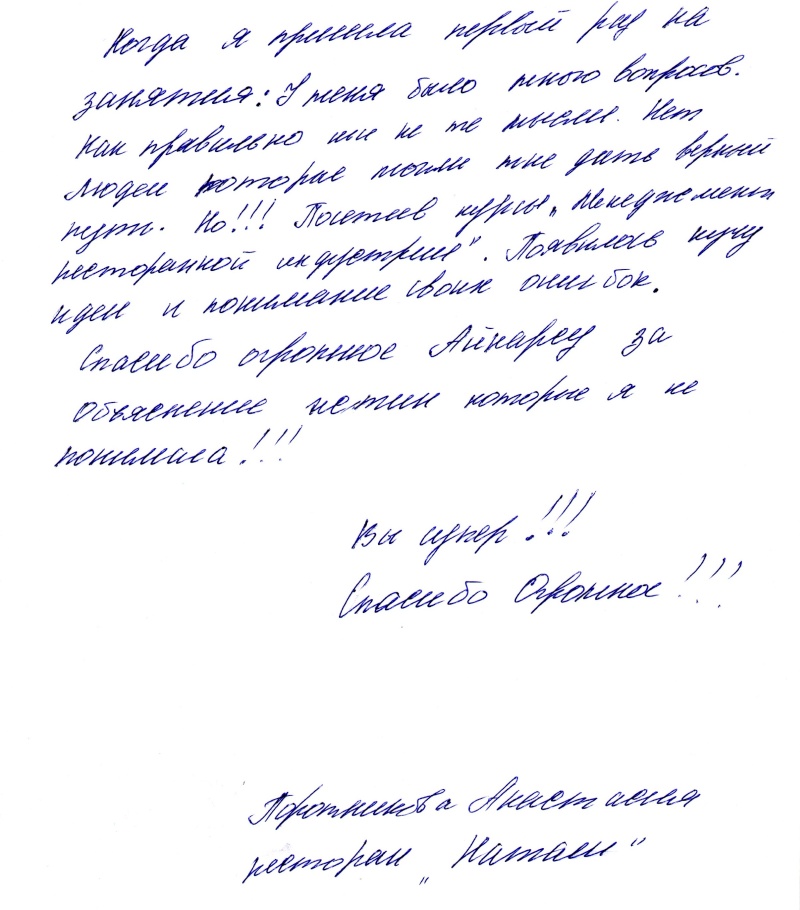 Когда я пришла первый раз на
занятия: У меня было много вопросов.
Как правильно или не те мысли. Нет
людей которые могли мне дать верный
путь. Но!!! Посетеев курсы „Менеджемент
ресторанной индустрии". Появилась кучу
идеи и понимание своих ошибок.
Спасибо огромное Айнарсу за
Объяснение истин которые я не
понимала!!!
Вы супер!!!
Спасибо Огромное!!!
Анастасия
ресторан „Натали"